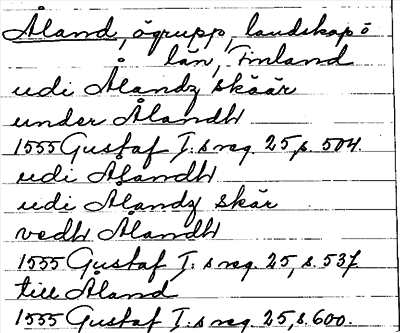 Åland, ögrupp, landskap o
län, Finland
udi Ålandz skäär
under Ålandh
1555 Gustaf I:s reg. 25, s. 504.
udi Ålandh
udi Ålandz skär
vedh Ålandh
1555 Gustaf I:s reg. 25, s. 537.
till Åland
1555 Gustaf I:s reg. 25 s. 600.